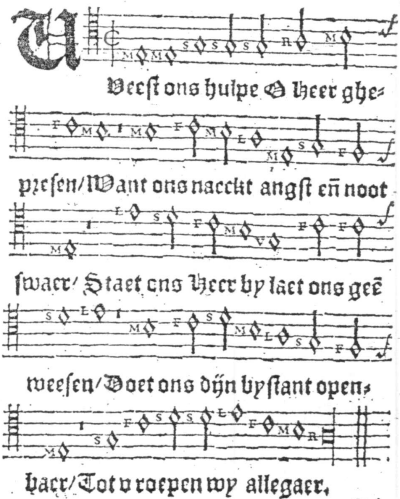 U
M M S S S R M
Veest ons hulpe O Heer ghe=
F M M F M L M S F
presen/Want ons naeckt angst eñ noot
M L S F M V F F
swaer/ Staet ons Heer by laet ons geẽ
S L M F S M L S F
weesen/Doet ons dijn bystant open=
M S F S S L F M R
baer/Tot v roepen wy allegaer,